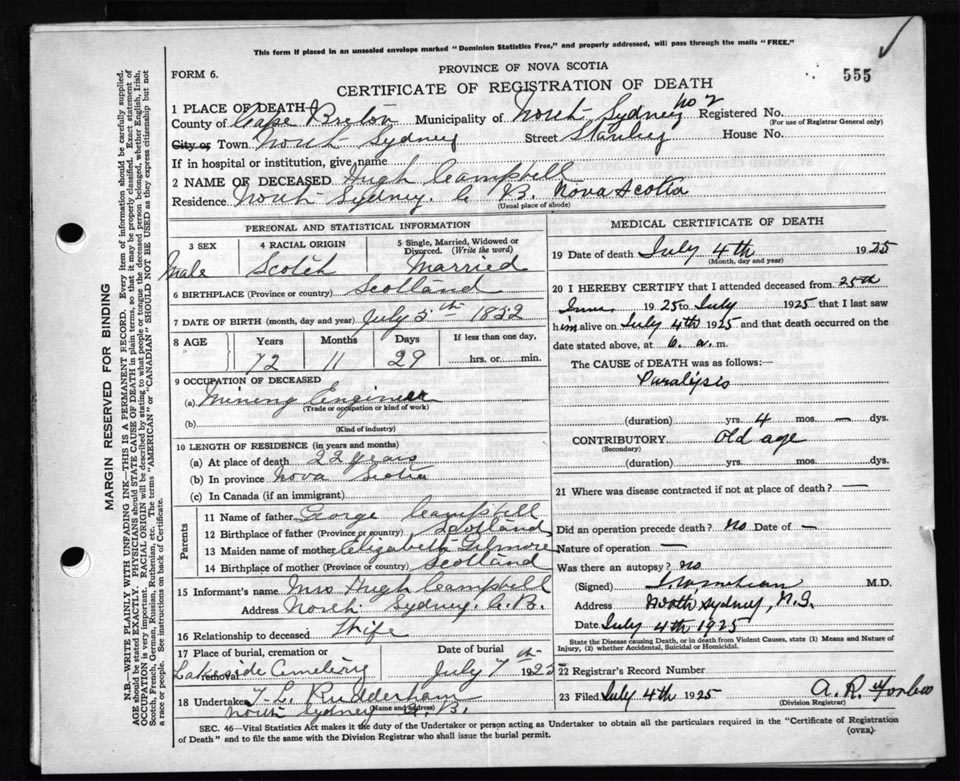 This form if placed in an unsealed envelope marked "Dominion Statistics Free," and properly addressed, will pass through the mails "FREE."
PROVINCE OF NOVA SCOTIA
FORM 6.
555
CERTIFICATE OF REGISTRATION OF DEATH
1 PLACE OF DEATH
County of Cape Breton Municipality of North Sydney No 2 Registered No.
(For use of Registrar General only)
City or Town North Sydney Street Stanley House No.
If in hospital or institution, give name
2 NAME OF DECEASED Hugh Campbell
Residence North Sydney. C. B. Nova Scotia
(Usual place of abode)
PERSONAL AND STATISTICAL INFORMATION
3 SEX 4 RACIAL ORIGIN 5 Single, Married, Widowed or Divorced. (Write the word)
Male Scotch Married
6 BIRTHPLACE (Province or country) Scotland
7 DATE OF BIRTH (month, day and year) July 5th 1852
8 AGE Years Months Days If less than one day,
72 11 29 hrs. or min.
9 OCCUPATION OF DECEASED
(a) Mining Engineer
(Trade or occupation or kind of work)
(b)
(Kind of industry)
10 LENGTH OF RESIDENCE (in years and months)
(a) At place of death 22 years
(b) In province Nova Scotia
(c) In Canada (if an immigrant)
Parents
11 Name of father George Campbell
12 Birthplace of father (Province or country) Scotland
13 Maiden name of mother Elizabeth Gilmore
14 Birthplace of mother (Province or country) Scotland
15 Informant's name Mrs Hugh Campbell
Address North Sydney. C. B.
16 Relationship to deceased Wife
17 Place of burial, cremation or removal Date of burial
Lakeside Cemetery July 7th 1925
18 Undertaker T. L. Rudderham
(Name and address)
North Sydney C. B.
MEDICAL CERTIFICATE OF DEATH
19 Date of death July 4th 1925
(Month, day and year)
20 I HEREBY CERTIFY that I attended deceased from 25th
June 1925 to July 1925 that I last saw
him alive on July 4th 1925 and that death occurred on the
date stated above, at 6. a. m.
The CAUSE of DEATH was as follows:—
Paralysis
(duration) yrs. 4 mos. — dys.
CONTRIBUTORY Old age
(Secondary)
(duration) yrs. mos. dys.
21 Where was disease contracted if not at place of death? —
Did an operation precede death? no Date of —
Nature of operation —
Was there an autopsy? no
(Signed) M.D.
Address North Sydney, N.S.
Date July 4th 1925
State the Disease causing Death, or in death from Violent Causes, state (1) Means and Nature of
Injury, (2) whether Accidental, Suicidal or Homicidal.
22 Registrar's Record Number
23 Filed July 4th 1925 A. R. Forbes
(Division Registrar)
SEC. 46—Vital Statistics Act makes it the duty of the Undertaker or person acting as Undertaker to obtain all the particulars required in the "Certificate of Registration
of Death" and to file the same with the Division Registrar who shall issue the burial permit.
(OVER)
MARGIN RESERVED FOR BINDING
N.B.—WRITE PLAINLY WITH UNFADING INK—THIS IS A PERMANENT RECORD. Every item of information should be carefully supplied.
AGE should be stated EXACTLY. PHYSICIANS should STATE CAUSE OF DEATH in plain terms, so that it may be properly classified. Exact statement of
OCCUPATION is very important. RACIAL ORIGIN will be described by stating to what people or tongue the deceased person belonged, whether English, Irish,
Scotch, French, German, Russian, Ruthenian, etc. The terms "AMERICAN" or "CANADIAN" SHOULD NOT BE USED as they express citizenship but not
a race or people. See instructions on back of Certificate.